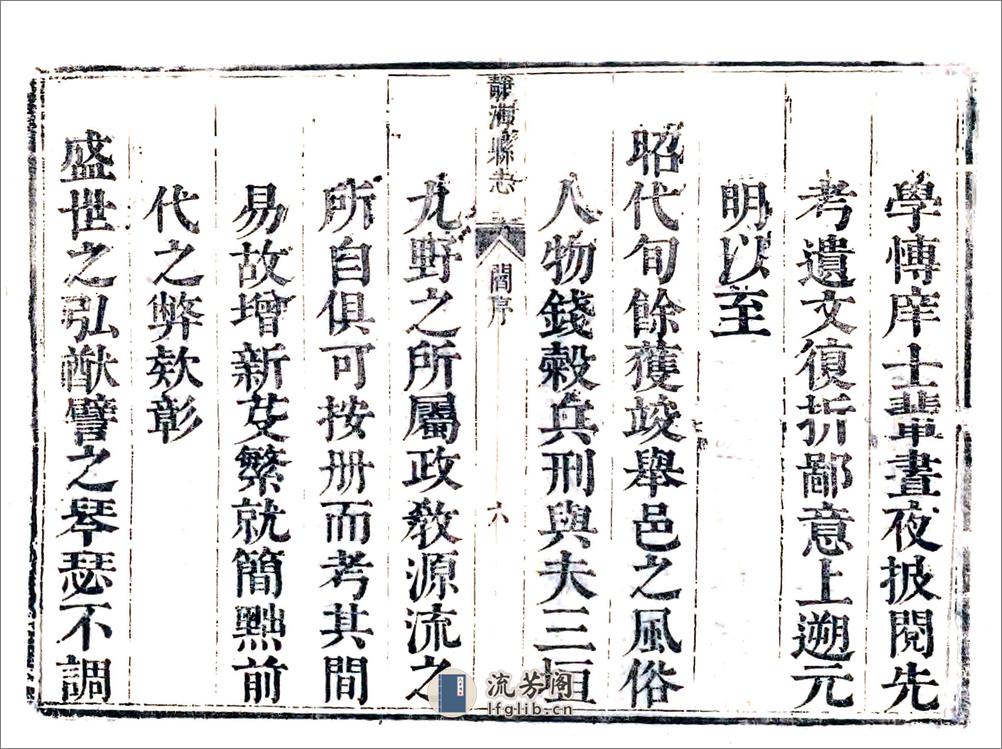 學博庠士輩晝夜披閱先
考遺文復折鄙意上遡元
明以至
昭代旬餘獲竣舉邑之風俗
人物錢榖兵刑與夫三垣
靜海縣志
閻序
六
九野之所屬政敎源流之
所自俱可按册而考其間
易故增新芟繁就簡黜前
代之弊欸彰
盛世之弘猷譬之琴瑟不調
流芳阁
lfglib.cn